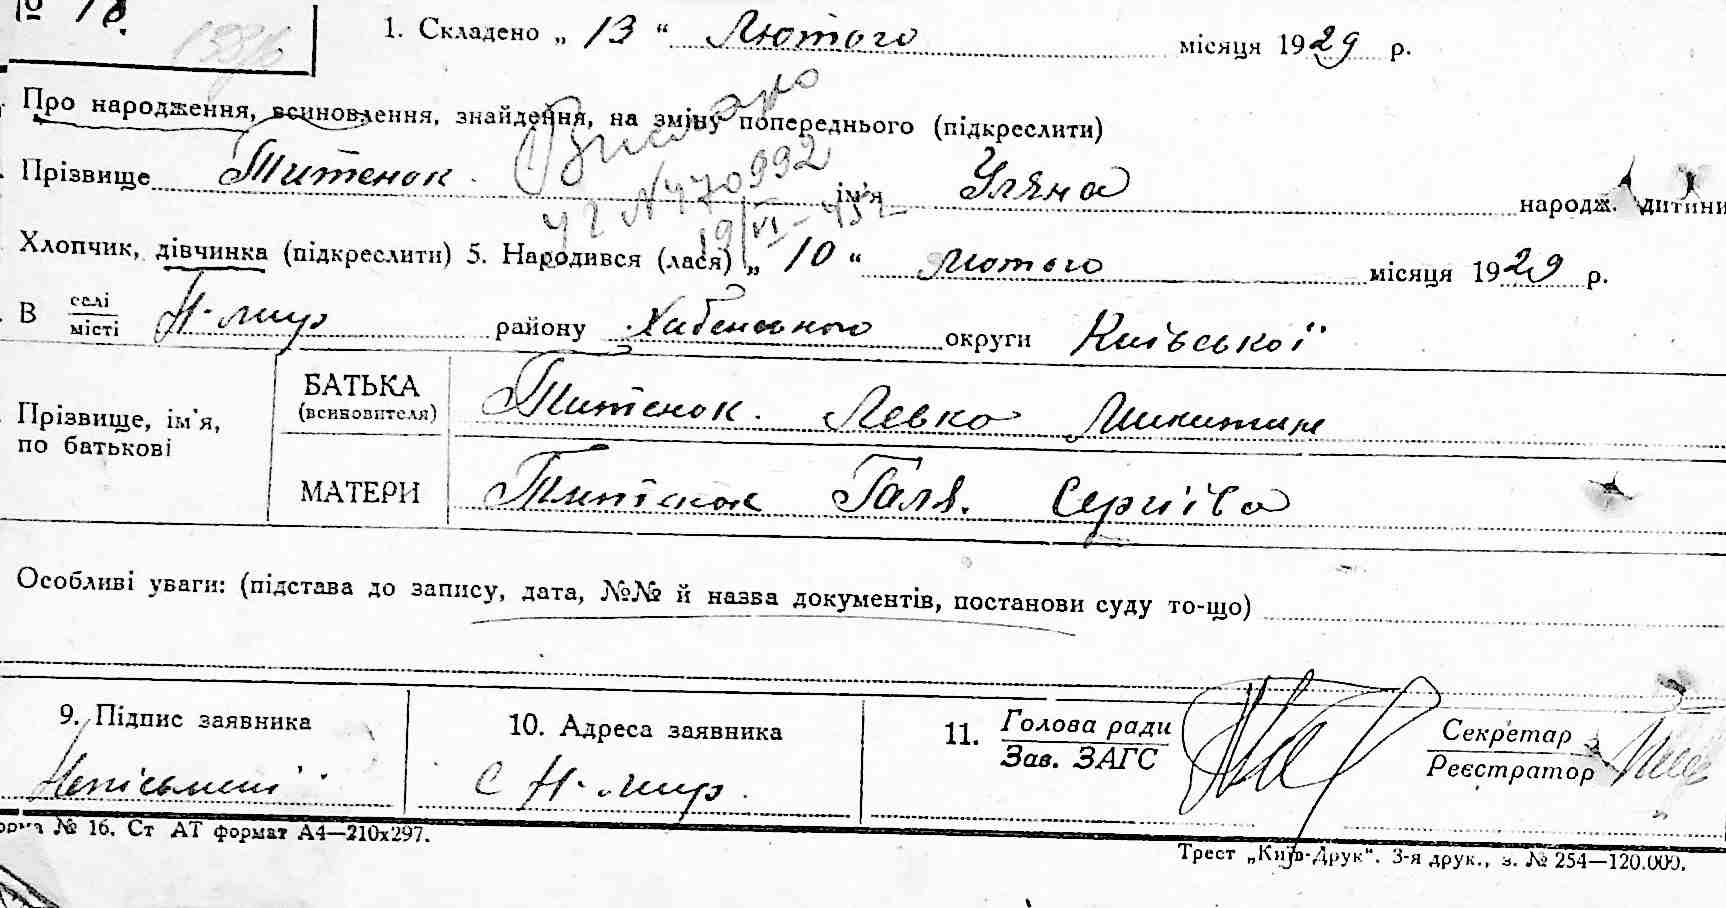 № 18.
1. Складено „ 13 “ Лютого місяця 1929 р.
Про народження, всиновлення, знайдення, на зміну попереднього (підкреслити)
Прізвище Титенок ім'я Уляна народж. дитини
Видано
УГ № 470992
19/VI-
Хлопчик, дівчинка (підкреслити) 5. Народився (лася) „ 10 “ лютого місяця 1929 р.
В селі
місті Н-мир району Хабенського округи Київської
Прізвище, ім'я,
по батькові
БАТЬКА
(всиновителя) Титенок. Левко Микитин
МАТЕРИ Титенок Галя. Сергіїва
Особливі уваги: (підстава до запису, дата, №№ й назва документів, постанови суду то-що)
9. Підпис заявника
Непісьмені
10. Адреса заявника
С Н-мир.
11. Голова ради
Зав. ЗАГС
Секретар
Реєстратор
№ 16. Ст АТ формат А4—210х297.
Трест „Київ-Друк“. 3-я друк., з. № 254—120.000.